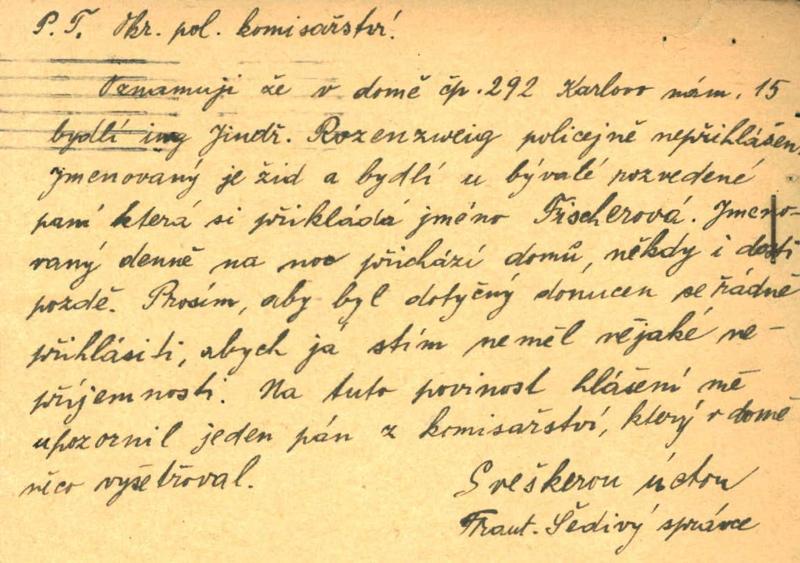 P. T. Okr. pol. komisařství!
Oznamuji že v domě čp. 292 Karlovo nám. 15
bydlí ing Jindř. Rozenzweig policejně nepřihlášen.
Jmenovaný je žid a bydlí u bývalé rozvedené
paní která si přikládá jméno Fischerová. Jmeno-
vaný denně na noc přichází domů, někdy i dosti
pozdě. Prosím, aby byl dotyčný donucen se řádně
přihlásiti, abych já stím neměl nějaké ne-
příjemnosti. Na tuto povinost hlášení mě
upozornil jeden pán z komisařství, který v domě
něco vyšetřoval.
S veškerou úctou
Frant. Šedivý správce